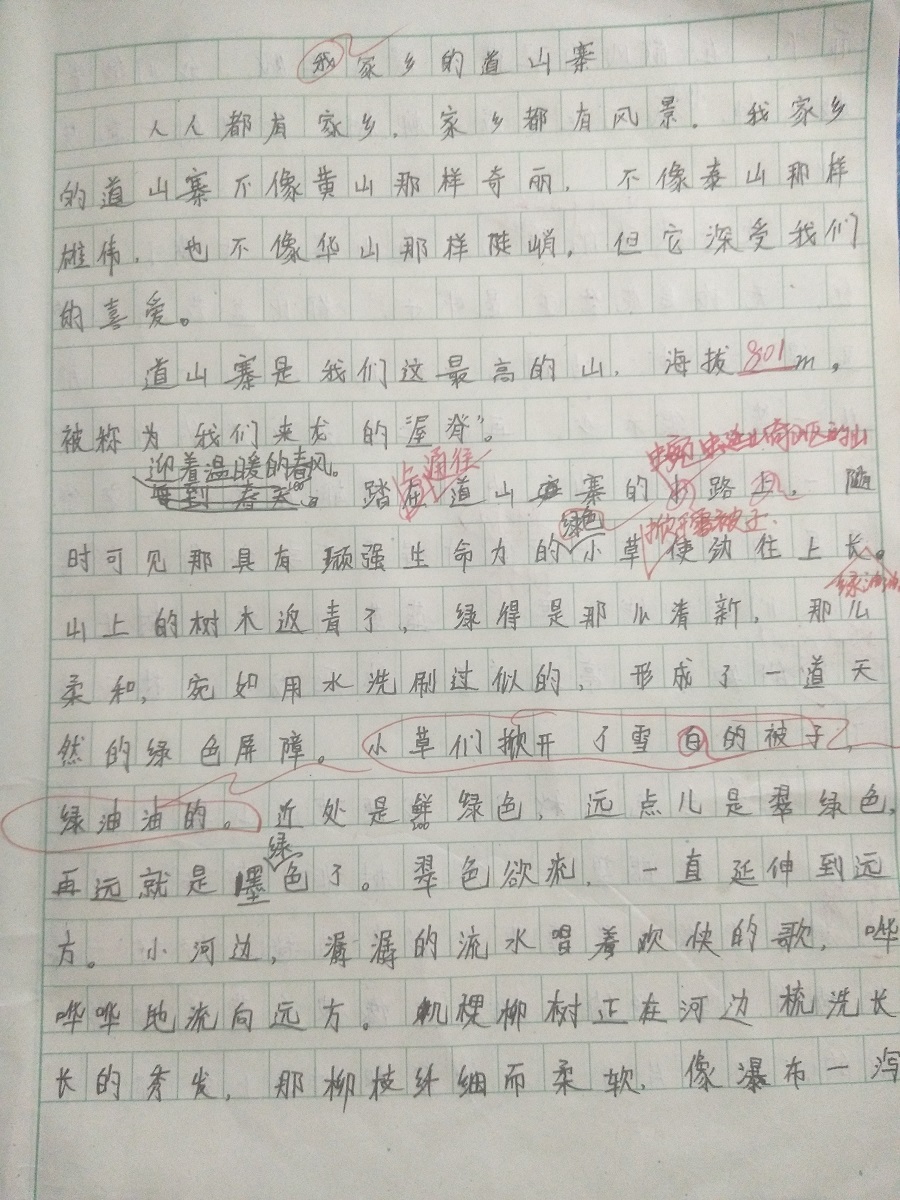 我家乡的道山寨
人人都有家乡，家乡都有风景。我家乡
的道山寨不像黄山那样奇丽，不像泰山那样
雄伟，也不像华山那样陡峭，但它深受我们
的喜爱。
道山寨是我们这最高的山，海拔801m，
被称为"我们来龙的屋脊"。
迎着温暖的春风。
每到春天
上通往
踏在道山寨的小路上，随
绿色
掀开雪被子
时可见那具有顽强生命力的小草使劲往上长。
绿油油
山上的树木返青了，绿得是那么清新，那么
柔和，宛如用水洗刷过似的，形成了一道天
然的绿色屏障。小草们掀开了雪白的被子，
绿油油的。近处是鲜绿色，远点儿是翠绿色，
绿
再远就是墨色了。翠色欲流，一直延伸到远
方。小河边，潺潺的流水唱着欢快的歌，哗
哗哗地流向远方。几棵柳树正在河边梳洗长
长的秀发，那柳枝纤细而柔软，像瀑布一泻